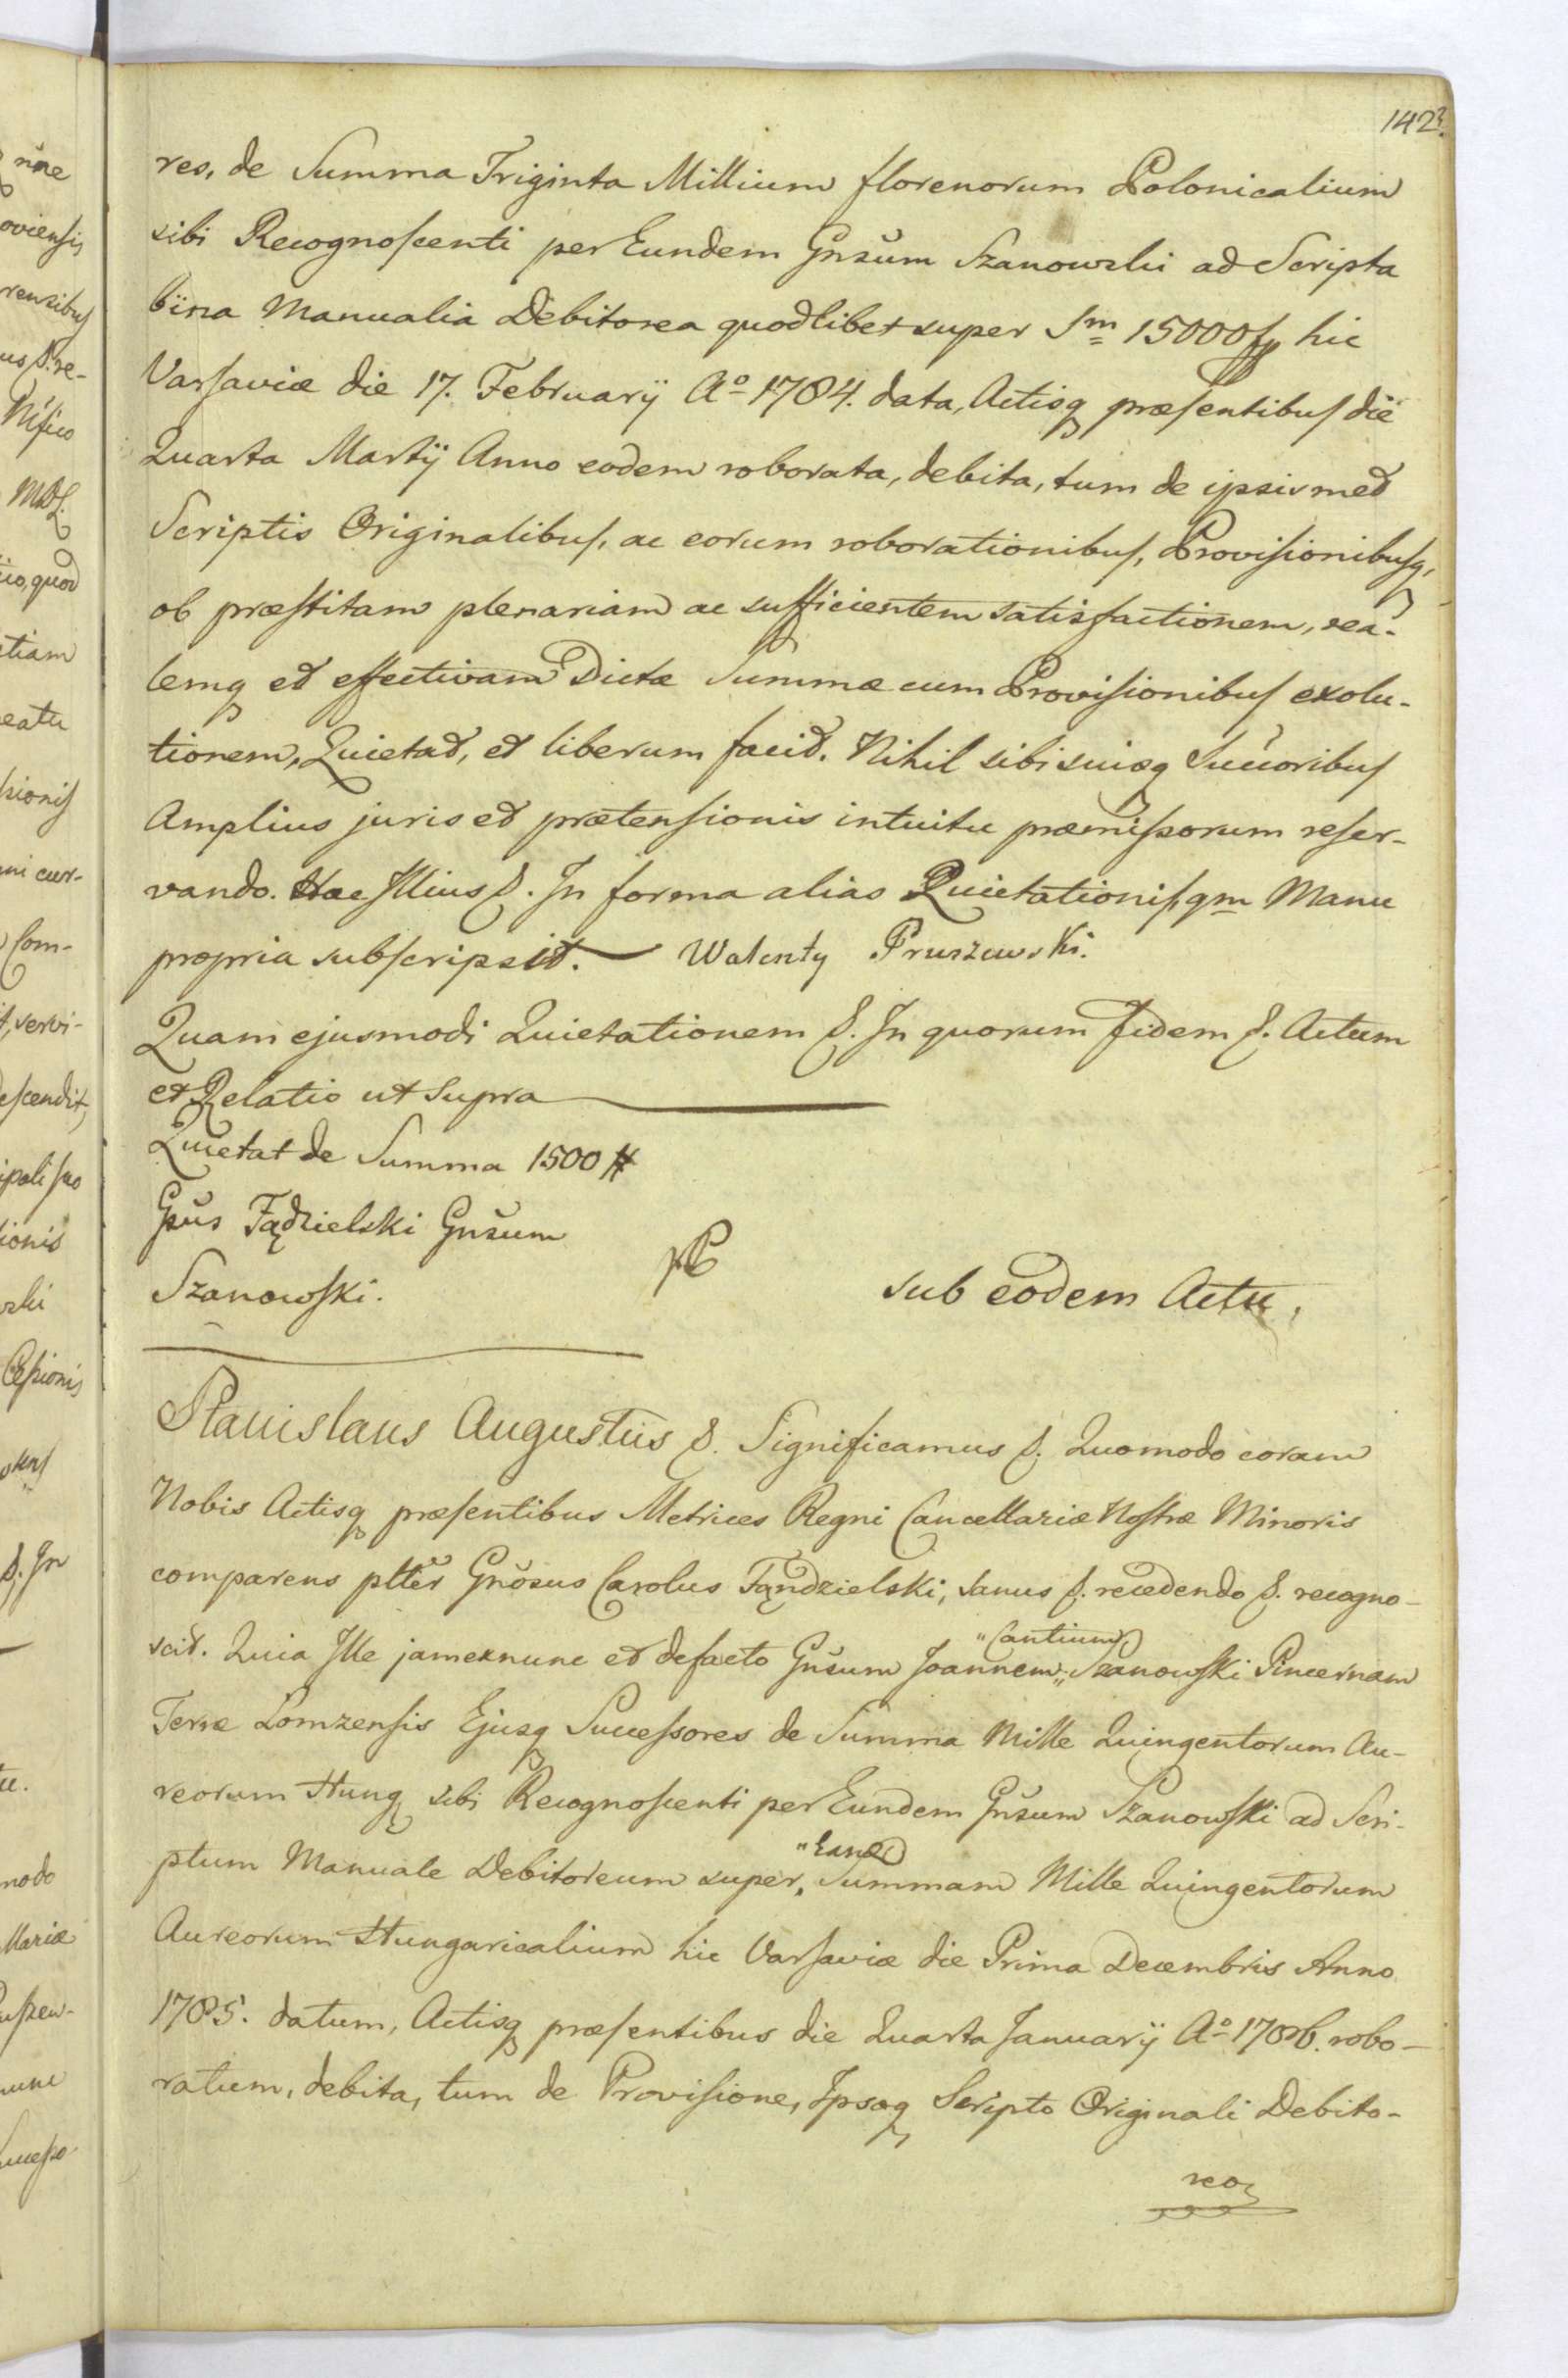 142
res, de Summa Triginta Millium florenorum Polonicalium
sibi Recognoscenti per Eundem Gnsum Szanowski ad Scripta
bina Manualia Debitorea quodlibet super Sm 15000 fp hic
Varsaviæ die 17. Februarÿ Ao 1784. data, Actisq præsentibus die
Quarta Martÿ Anno eodem roborata, debita, tum de ipsismet
Scriptis Originalibus, ac eorum roborationibus, Provisionibusq,
ob præstitam plenariam ac sufficientem satisfactionem, rea-
lemq et effectivam Dictæ Summæ cum Provisionibus exolu-
tionem, Quietat, et liberum facit. Nihil sibi suisq Succoribus
Amplius juris et prætensionis intuitu præmissorum reser-
vando. Hac Illius &. In forma alias Quietationis, qm Manu
propria subscripsit. — Walenty Pruszewski.
Quam ejusmodi Quietationem &. In quorum Fidem &. Actum
et Relatio ut Supra
Quietat de Summa 1500 #
Gsus Fądzielski Gnsum
Szanowski.
sub eodem Actu,
Stanislaus Augustus &. Significamus &. Quomodo coram
Nobis Actisq præsentibus Metrices Regni Cancellariæ Nostræ Minoris
comparens pltter Gnosus Carolus Fądzielski, sanus &. recedendo &. recogno-
scit. Quia Ille jam ex nunc et de facto Gnsum Joannem „Cantium" Szanowski Pincernam
Terræ Lomzensis Ejusq Successores de Summa Mille Quingentorum Au-
reorum Hung sibi Recognoscenti per Eundem Gnsum Szanowski ad Scri-
ptum Manuale Debitoreum super „Eand" Summam Mille Quingentorum
Aureorum Hungaricalium hic Varsaviæ die Prima Decembris Anno
1785. datum, Actisq præsentibus die Quarta Januarÿ Ao 1786. robo-
ratum, debita, tum de Provisione, Ipsoq Scripto Originali Debito-
reo